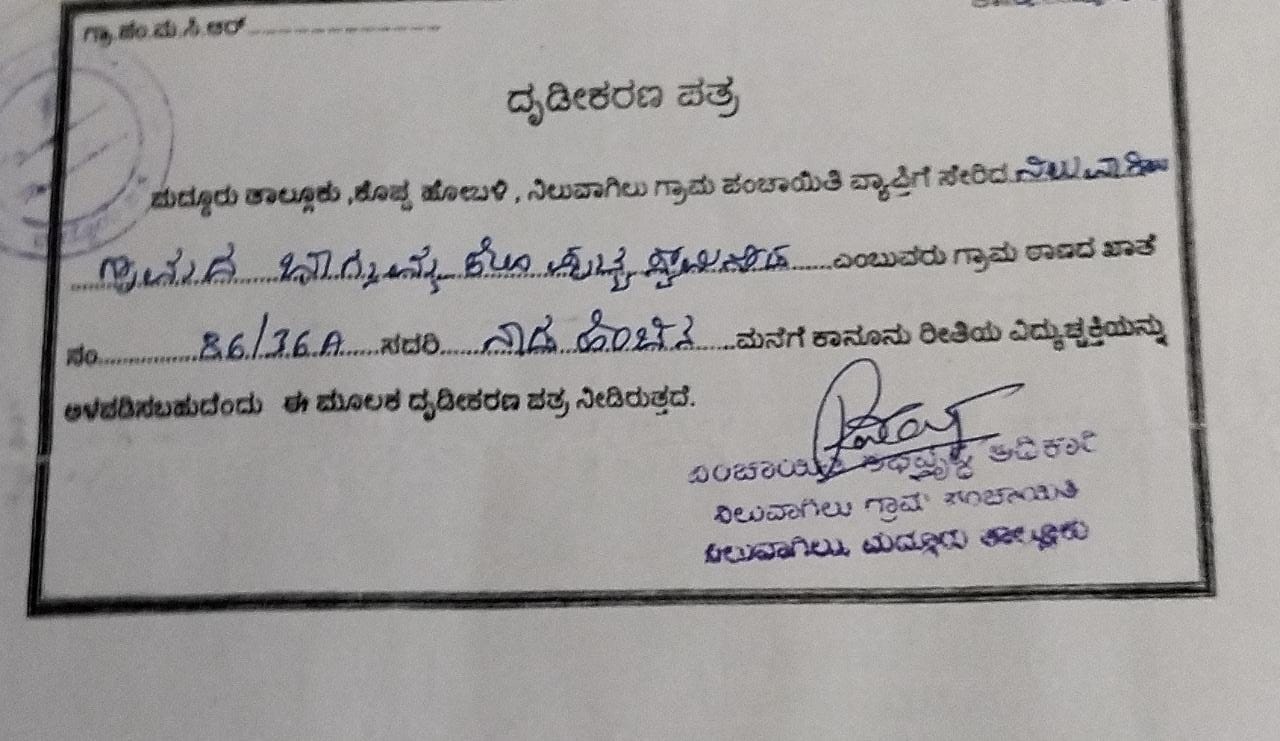 ಗ್ರಾ.ಪಂ.ಮ.ಸಿ.ಆರ್
ದೃಡೀಕರಣ ಪತ್ರ
ಮದ್ದೂರು ತಾಲ್ಲೂಕು ,ಕೊಪ್ಪ ಹೋಬಳಿ , ನಿಲುವಾಗಿಲು ಗ್ರಾಮ ಪಂಚಾಯಿತಿ ವ್ಯಾಪ್ತಿಗೆ ಸೇರಿದ ನಿಲುವಾಗಿಲು
ಗ್ರಾಮದ ಭಾಗ್ಯಮ್ಮ ಕೋಂ ಎಂಬುವರು ಗ್ರಾಮ ಠಾಣದ ಖಾತೆ
ನಂ 86/36A ಸದರಿ ನಾಡ ಹೆಂಚಿನ ಮನೆಗೆ ಕಾನೂನು ರೀತಿಯ ವಿದ್ಯುಚ್ಛಕ್ತಿಯನ್ನು
ಅಳವಡಿಸಬಹುದೆಂದು ಈ ಮೂಲಕ ದೃಡೀಕರಣ ಪತ್ರ ನೀಡಿರುತ್ತದೆ.
ಪಂಚಾಯಿತಿ ಅಭಿವೃದ್ಧಿ ಅಧಿಕಾರಿ
ನಿಲುವಾಗಿಲು ಗ್ರಾಮ ಪಂಚಾಯಿತಿ
ನಿಲುವಾಗಿಲು, ಮದ್ದೂರು ತಾಲ್ಲೂಕು